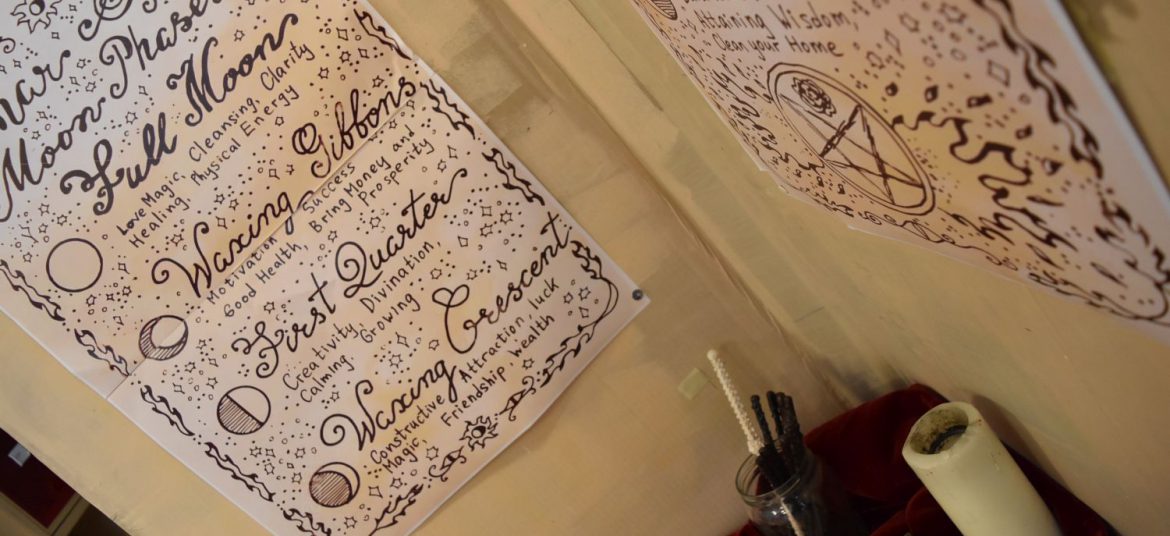 Moon Phases
Full Moon
Love Magic, Cleansing, Clarity
Healing, Physical Energy
Waxing Gibbons
Motivation, Success
Good Health, Bring Money and
Prosperity
First Quarter
Creativity, Divination,
Calming Growing
Waxing Crescent
Constructive Attraction, luck
Magic, Friendship wealth
Attaining Wisdom,
Clean your Home